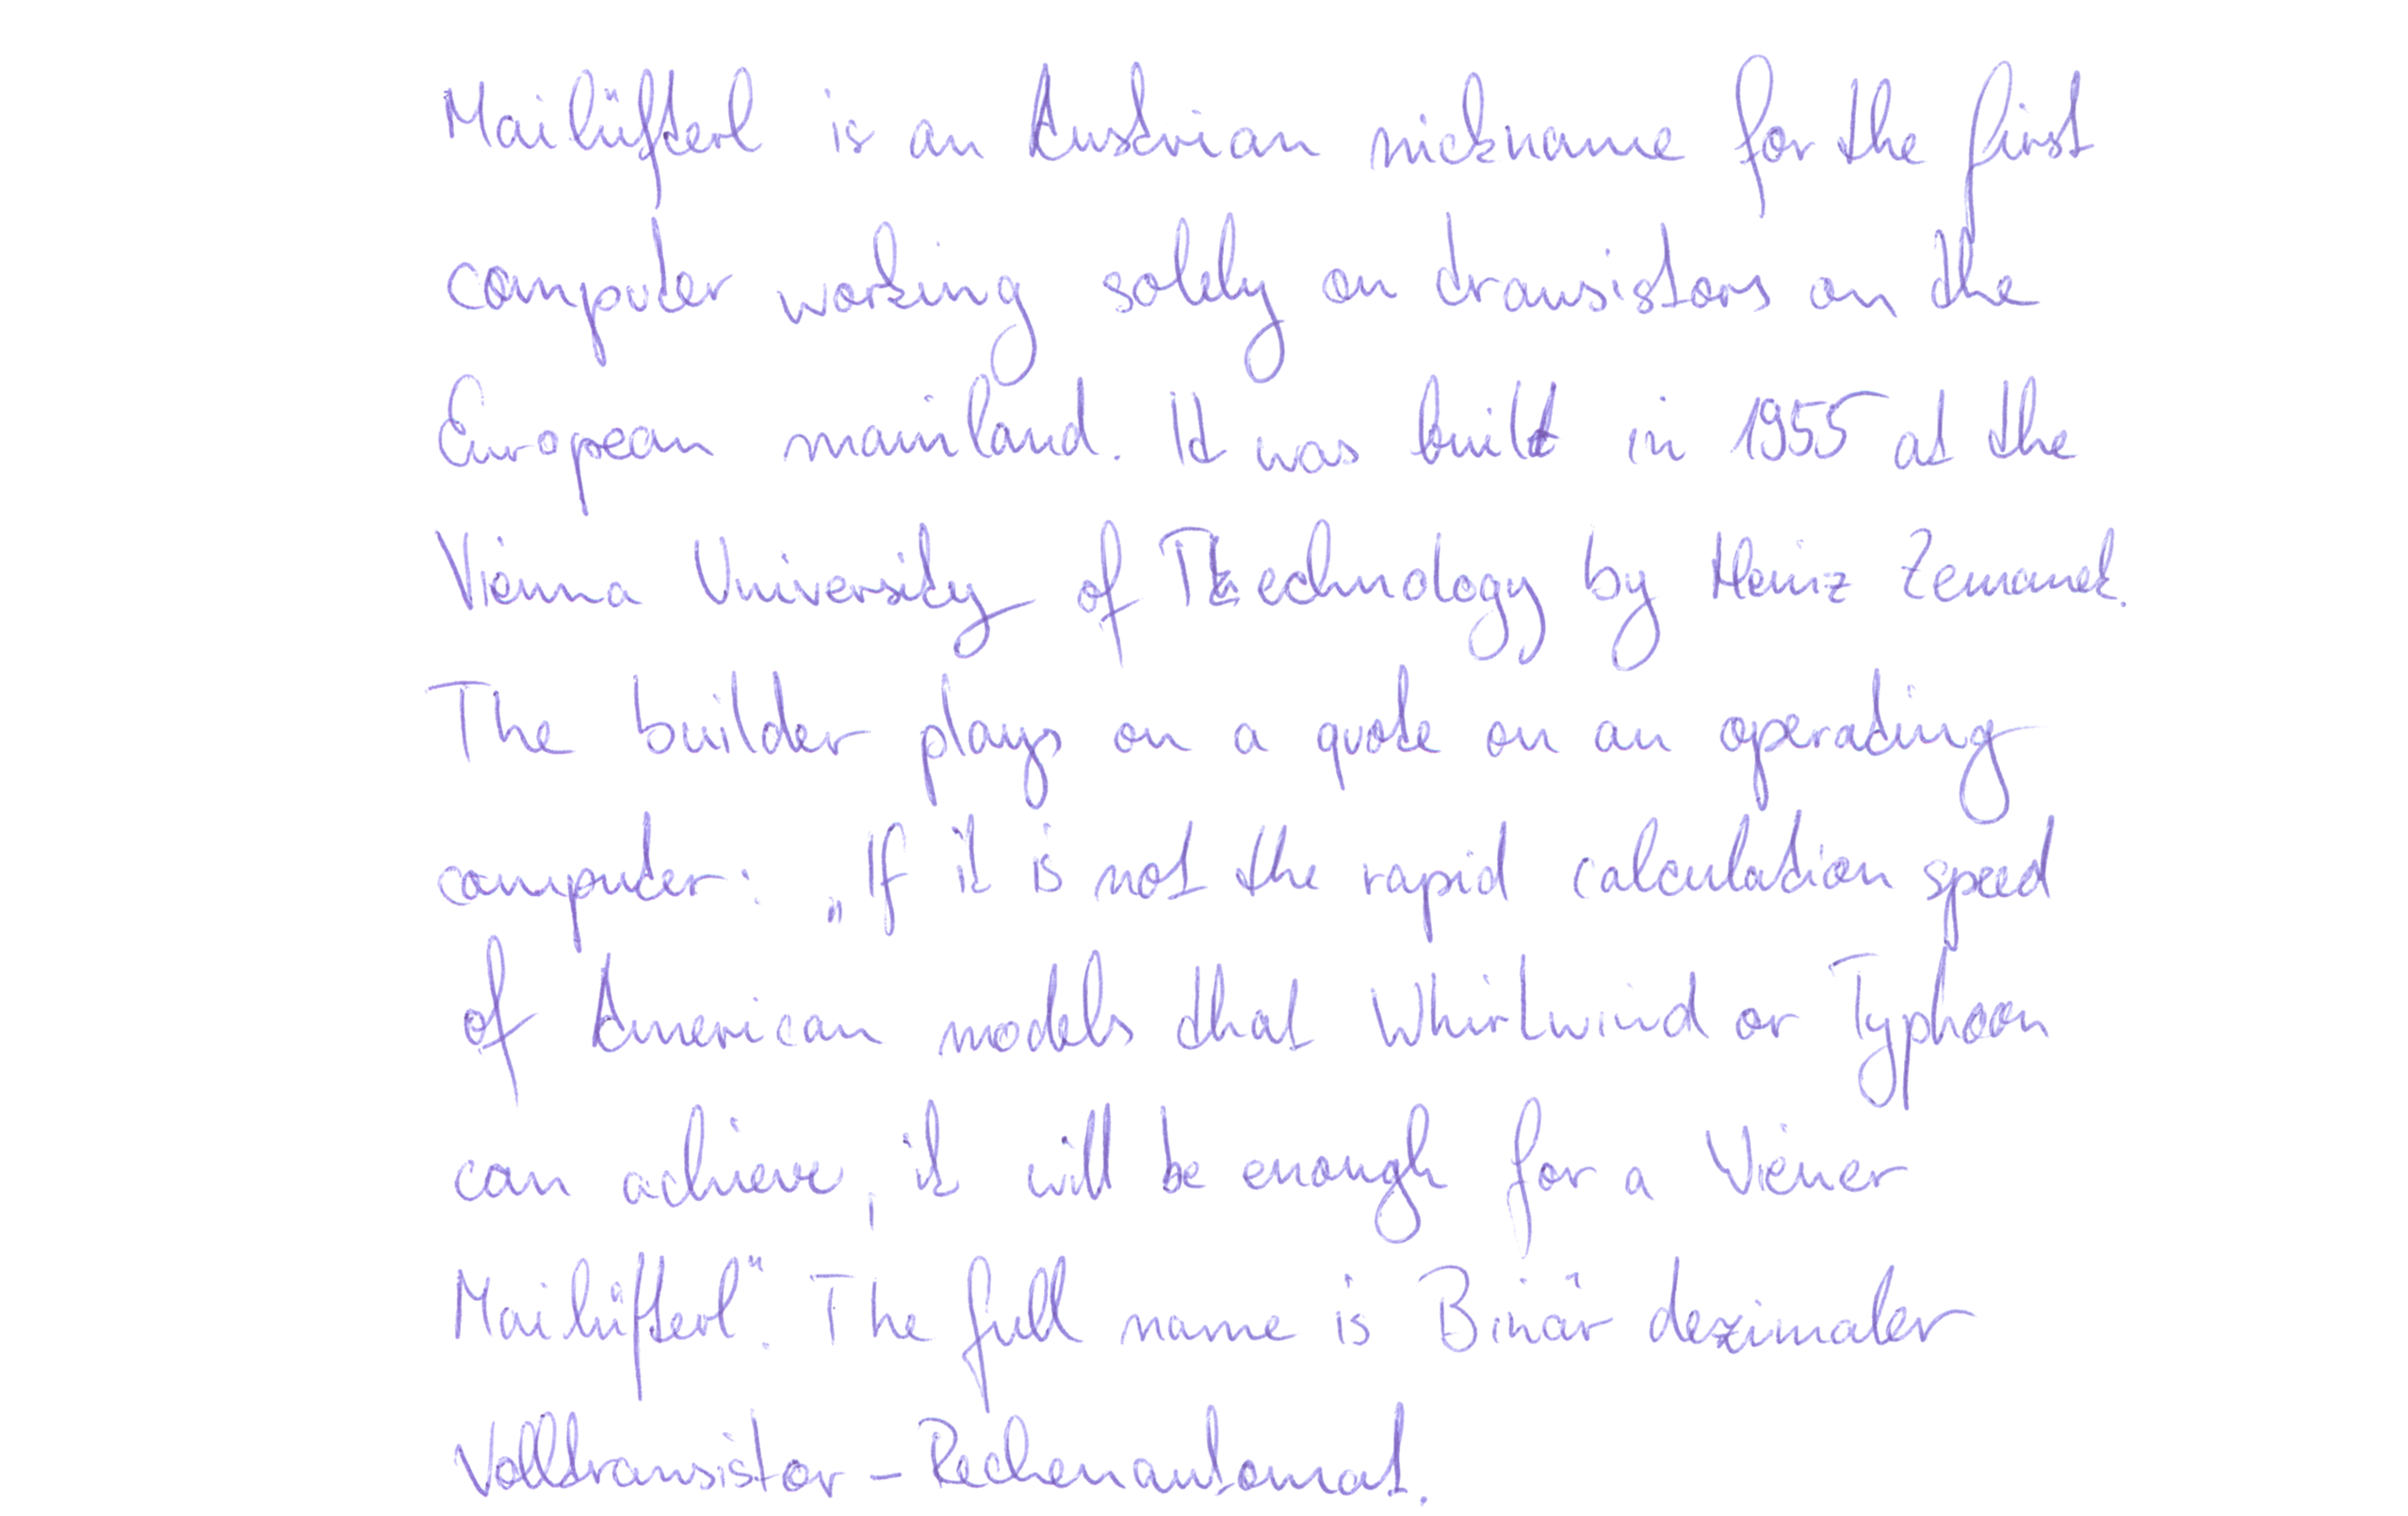 Mailüfterl is an Austrian nickname for the first
computer working solely on transistors on the
European mainland. It was built in 1955 at the
Vienna University of Technology by Heinz Zemanek.
The builder plays on a quote on an operating
computer: „If it is not the rapid calculation speed
of American models that Whirlwind or Typhoon
can achieve, it will be enough for a Wiener
Mailüfterl“. The full name is Binär dezimaler
Volltransistor-Rechenautomat.